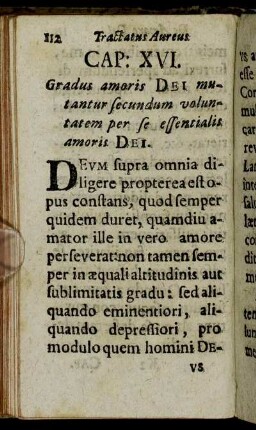 112 Tractatus Aureus
CAP: XVI.
Gradus amoris DEI mu-
tantur secundum volun-
tatem per se essentialis
amoris DEI.
DEVM supra omnia di-
ligere propterea est o-
pus constans, quod semper
quidem duret, quamdiu a-
mator ille in vero amore
perseverat: non tamen sem-
per in æquali altitudinis aut
sublimitatis gradu: sed ali-
quando eminentiori, ali-
quando depressiori, pro
modulo quem homini DE-
VS